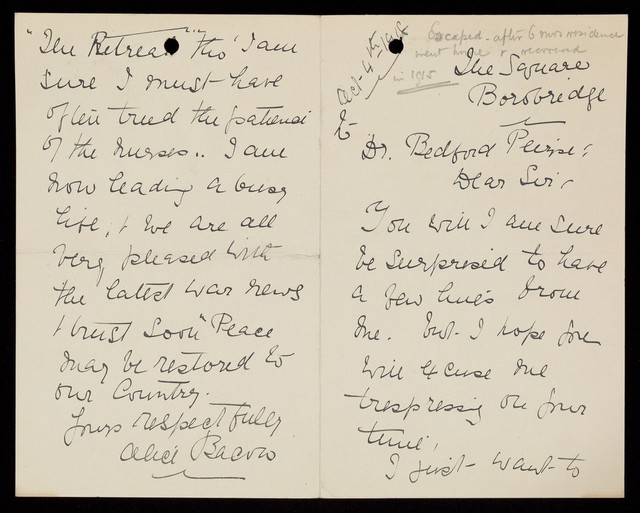 Escaped. after 6 mos residence
went home & recovered
in 1915
Oct. 4th 1918
The Square
Borobridge
To
Dr. Bedford Pierse;
Dear Sir,
You will I am sure
be surprised to have
a few lines from
me. but I hope you
will excuse me
trespressing on your
time,
I just want to
"The Retreat" tho' I am
sure I must have
often tried the patience
of the nurses.. I am
now leading a busy
life, & we are all
very pleased with
the latest war news
& trust soon "Peace
may be restored to
our Country.
Yours respectfully
Alice Bacon